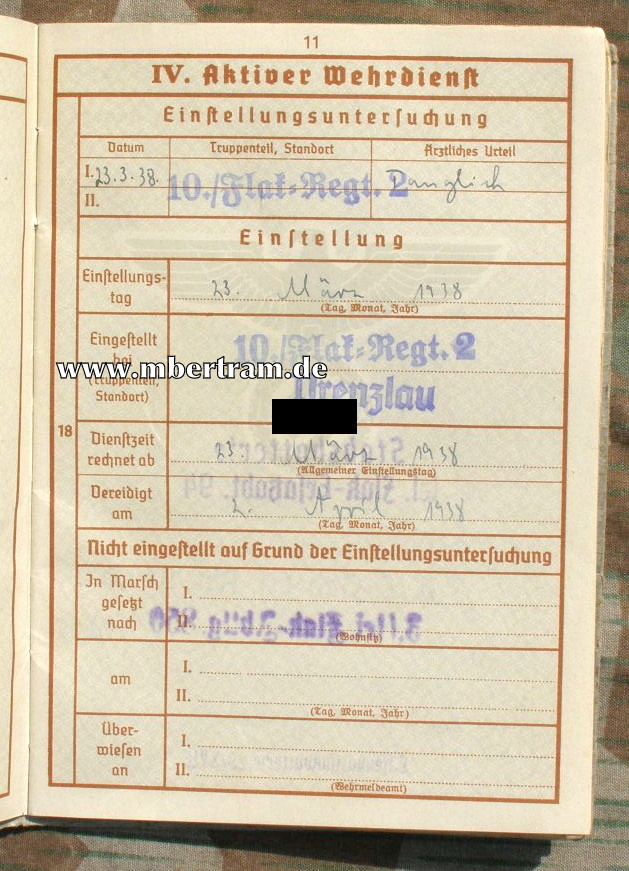 11
IV. Aktiver Wehrdienst
Einstellungsuntersuchung
Datum Truppenteil, Standort Ärztliches Urteil
I. 23.3.38. 10./Flak-Regt. 2 Tauglich
II.
Einstellung
Einstellungs-
tag
23. März 1938
(Tag, Monat, Jahr)
Eingestellt
bei
(Truppenteil,
Standort)
10./Flak-Regt. 2
Prenzlau
www.mbertram.de
18
Dienstzeit
rechnet ab
23. März 1938
(Allgemeiner Einstellungstag)
Vereidigt
am
2. April 1938
(Tag, Monat, Jahr)
Nicht eingestellt auf Grund der Einstellungsuntersuchung
In Marsch
gesetzt
nach
I.
II.
(Wohnsitz)
am
I.
II.
(Tag, Monat, Jahr)
Über-
wiesen
an
I.
II.
(Wehrmeldeamt)